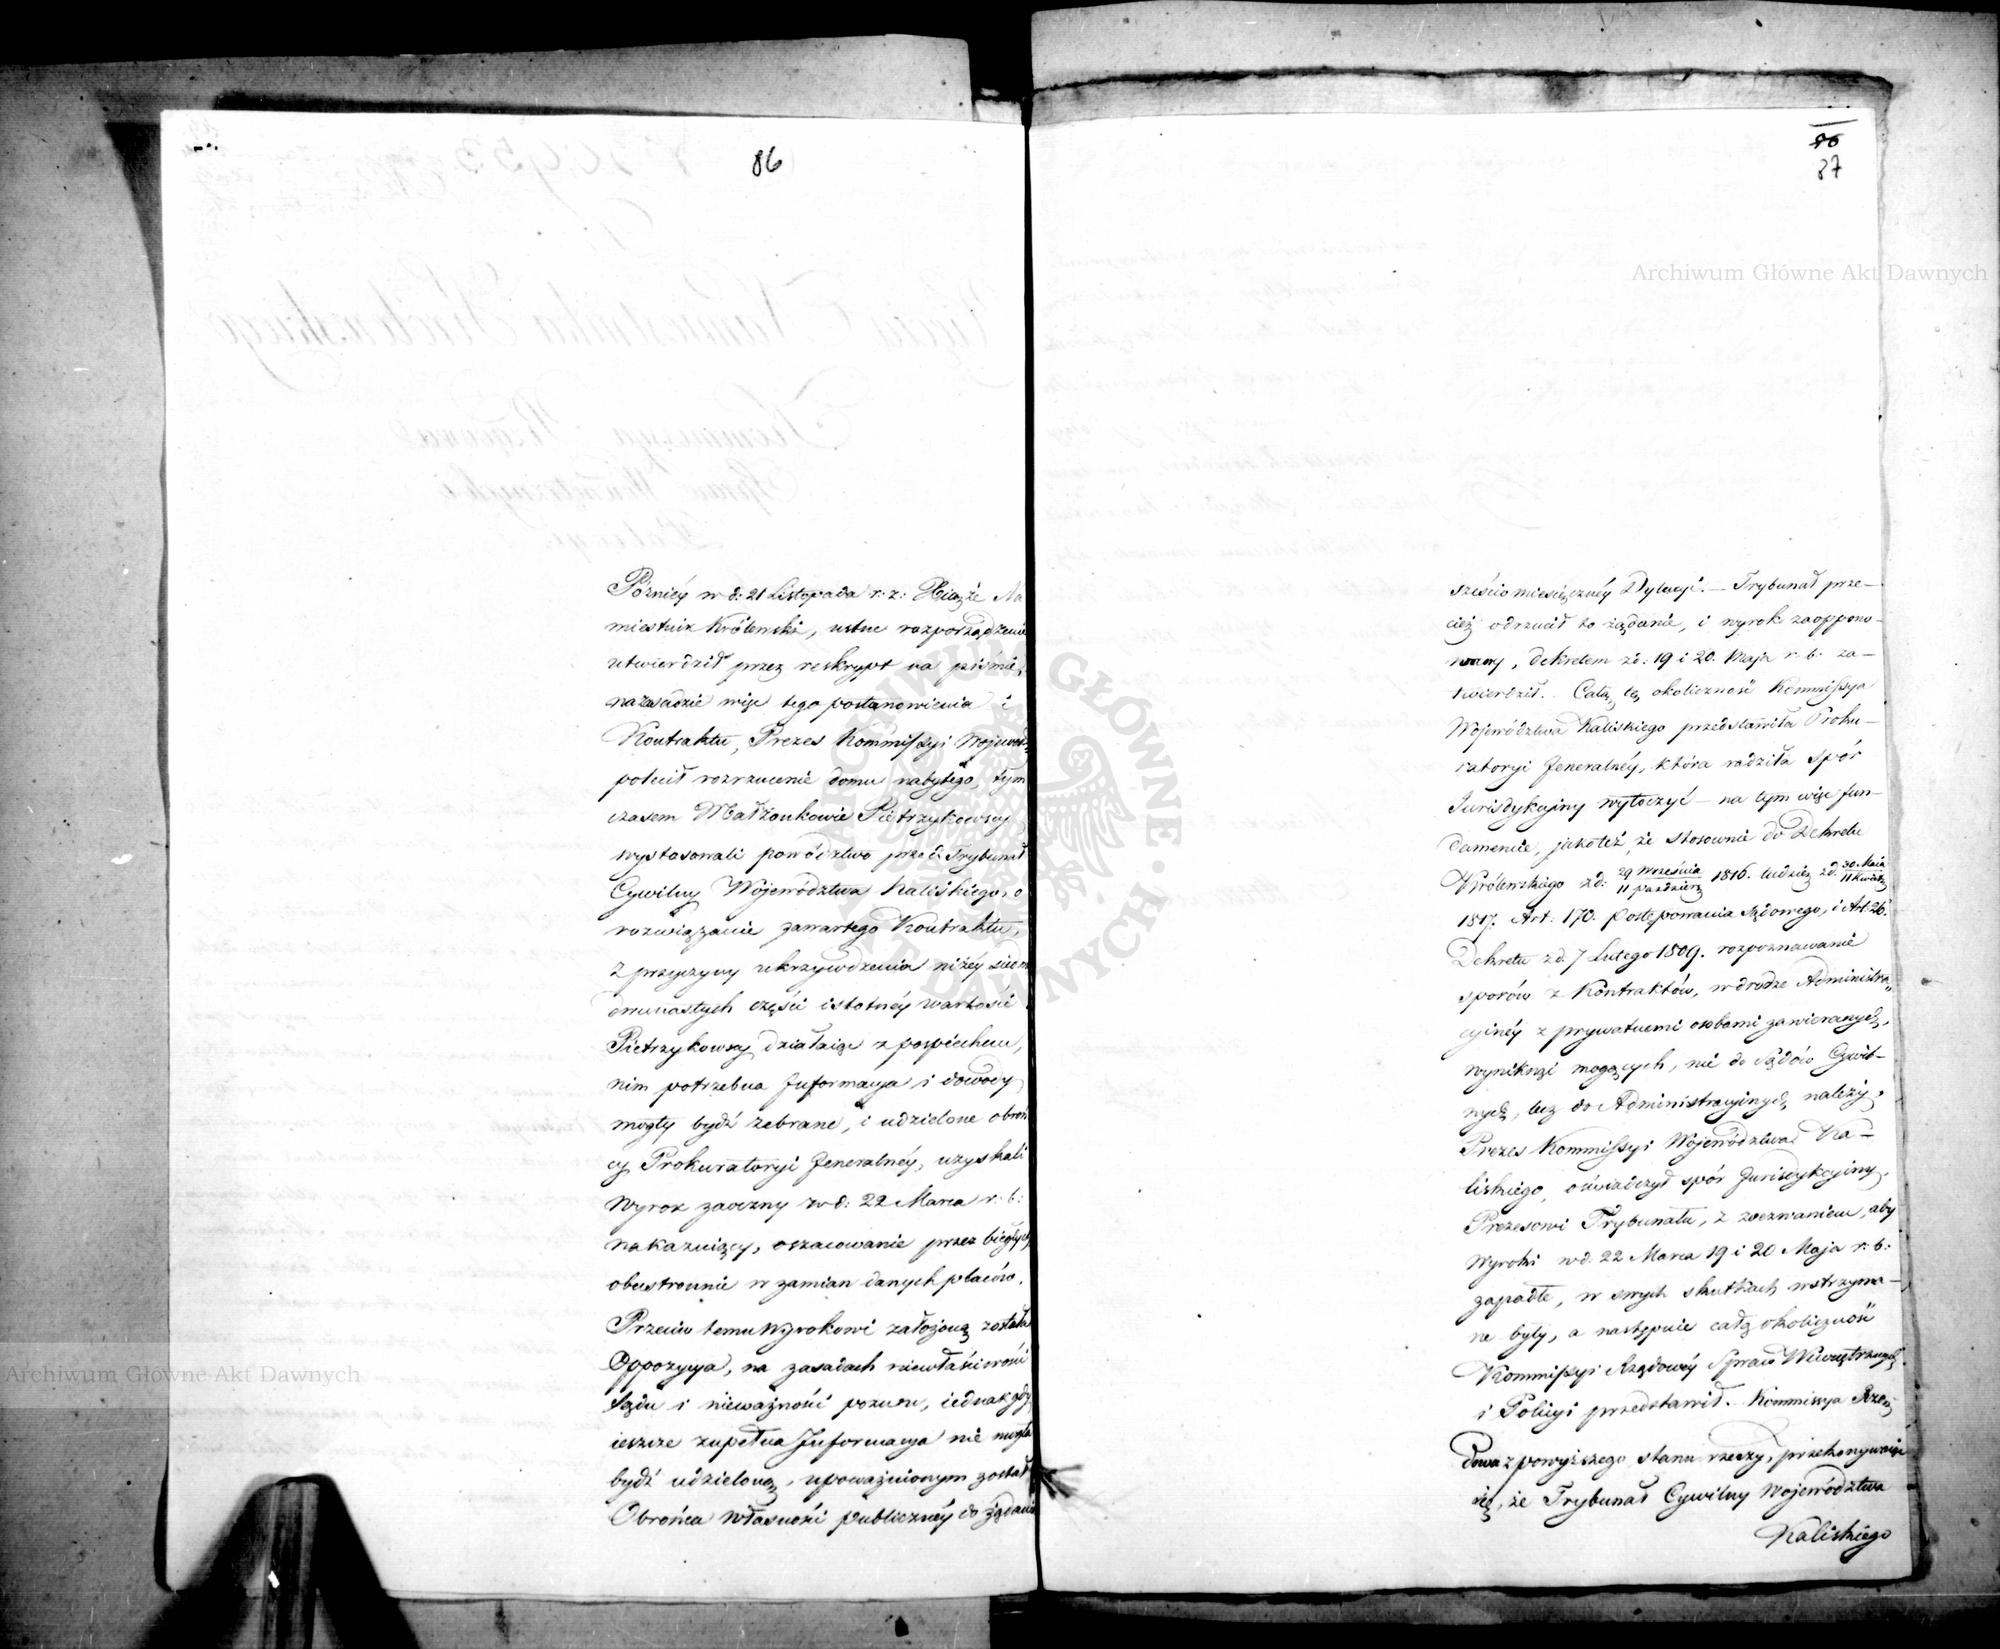 86
Późniéy w d: 21 Listopada r: z: Xiąże Na
miestnik Królewski, ustne rozporządzenie
utwierdził przez reskrypt na piśmie,
na zasadzie więc tego postanowienia i
Kontraktu, Prezes Kommissyi Wojewódz
polecił rozrzucenie domu nabytego, tym
czasem Małżonkowie Pietrzykowscy
wystosowali powództwo przed Trybunał
Cywilny Województwa Kaliskiego, o
rozwiązanie zawartego Kontraktu,
z przyczyny ukrzywdzenia niżéy siedm
dwunastych części istotnéy wartości
Pietrzykowscy działaiąc z pospiechem,
nim potrzebna Informacya i dowody
mogły bydź zebrane, i udzielone obroń
cy Prokuratoryi Jeneralnéy, uzyskali
wyrok zaoczny w d: 22 Marca r: b:
nakazuiący, oszacowanie przez biegłych
obustronnie w zamian danych placów.
Przeciw temu wyrokowi założoną została
Oppozycya, na zasadach niewłaściwości
Sądu i nieważności pozwu, iednak gdy
ieszcze zupełna Informacya nie mogła
bydź udzieloną, upoważnionym został
Obrońca własności publicznéy do żądania
86
87
sześcio miesięcznéy Dylacyi. — Trybunał prze-
cież odrzucił to żądanie, i wyrok zaoppono-
wany, dekretem z d: 19 i 20. Maja r: b: za-
twierdził. Całą tę okoliczność Kommissya
Województwa Kaliskiego przedstawiła Proku-
ratoryi Jeneralnéy, która radziła spór
Jurisdykcyiny wytoczyć — na tym więc fun-
damencie, jakoteż, że stosownie do Dekretu
Królewskiego z d: 29 Września / 11 Paździer 1816. tudzież z d. 30 Maia / 11 Kwiet
1817. Art. 170. Postępowania Sądowego, i Art: 26.
Dekretu z d 7 Lutego 1809. rozpoznawanie
sporów z Kontraktów, w drodze Administra„
cyinéy z prywatnemi osobami zawieranych,
wyniknąć mogących, nie do Sądów Cywil-
nych, lecz do Administracyinych należy,
Prezes Kommissyi Województwa Ka-
liskiego, oświadczył spór Jurisdykcyiny,
Prezesowi Trybunału, z wezwaniem, aby
wyroki w d. 22 Marca 19 i 20 Maja r: b:
zapadłe, w swych skutkach wstrzyma-
ne były, a następnie całą okoliczność
Kommissyi Rządowéy Spraw Wewnętrznych
i Policyi przedstawił. Kommissya Rzą
dowa z powyższego stanu rzeczy, przekonywaiąc
się, że Trybunał Cywilny Województwa
Kaliskiego
Archiwum Główne Akt Dawnych
Archiwum Główne Akt Dawnych